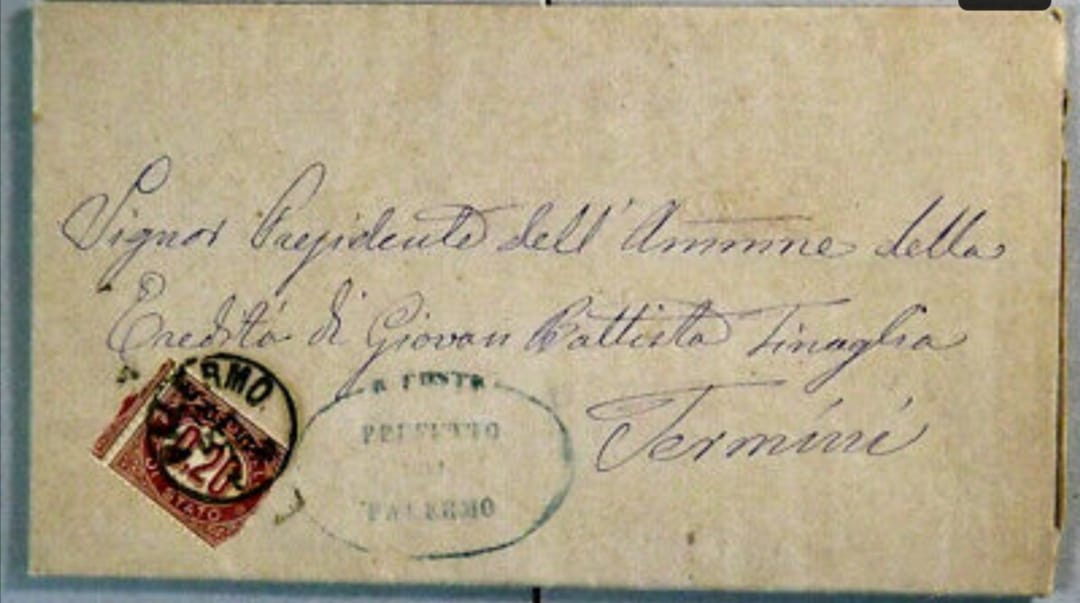 Signor Presidente dell'Ammne della
Eredità di Giovan Battista Finaglia
Termini
R POSTE
PREFETTO
DI
PALERMO
ERMO
0.20
DI STATO